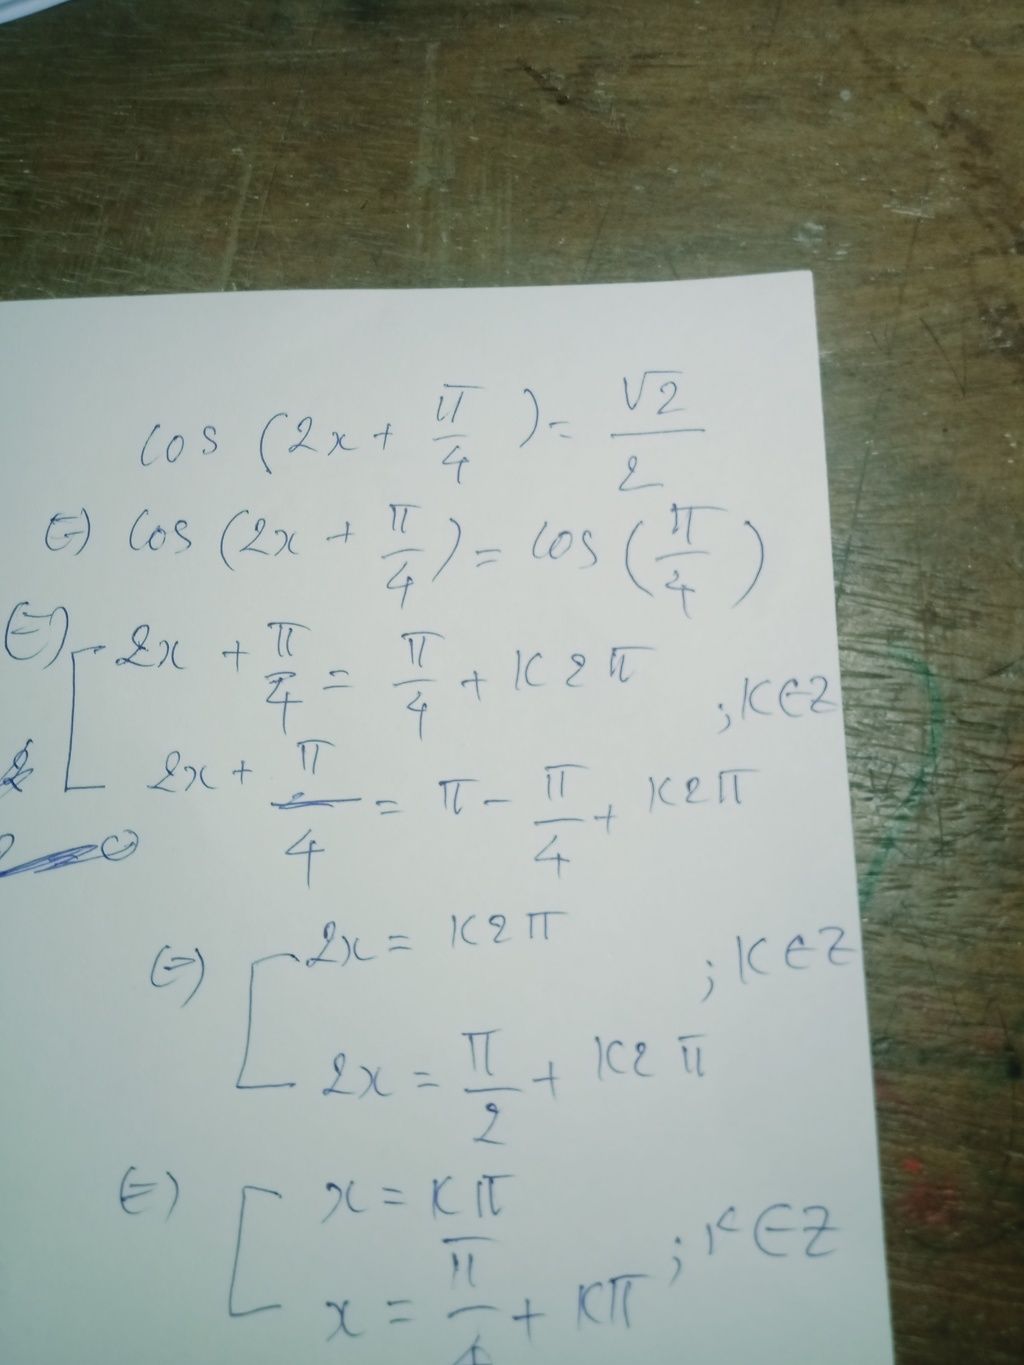 cos (2x + π/4) = √2/2
⇔ cos (2x + π/4) = cos (π/4)
⇔ [ 2x + π/4 = π/4 + k2π
; k ∈ Z
2x + π/4 = π - π/4 + k2π
⇔ [ 2x = k2π
; k ∈ Z
2x = π/2 + k2π
⇔ [ x = kπ
; k ∈ Z
x = π/4 + kπ